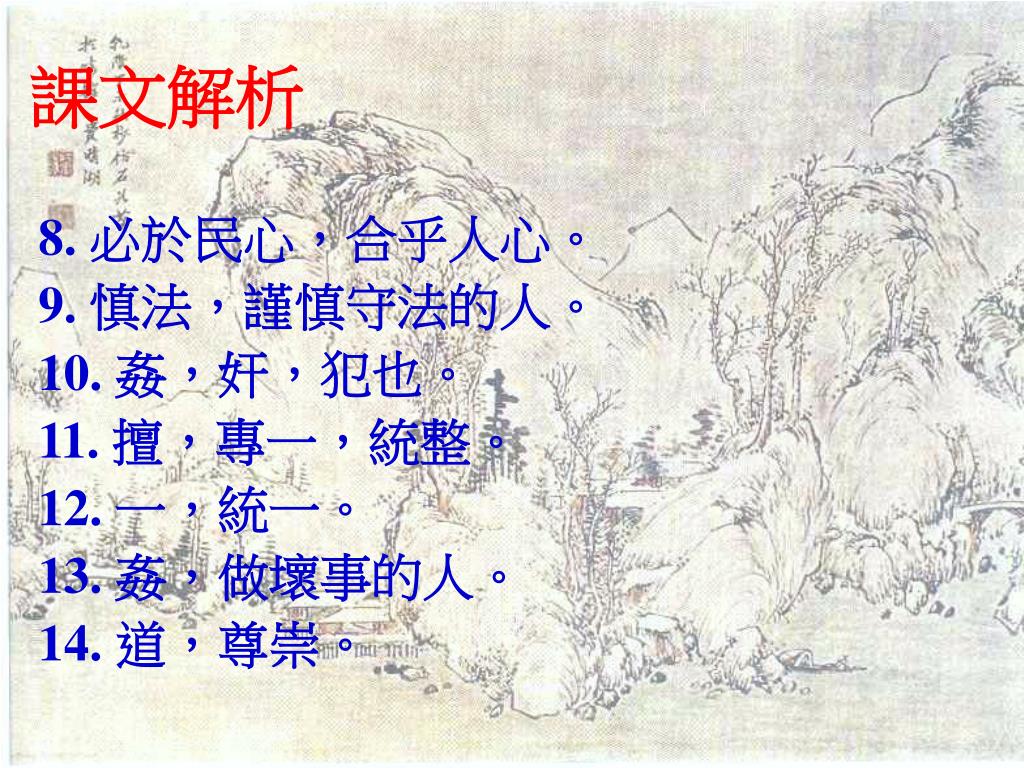 課文解析
8. 必於民心，合乎人心。
9. 慎法，謹慎守法的人。
10. 姦，奸，犯也。
11. 擅，專一，統整。
12. 一，統一。
13. 姦，做壞事的人。
14. 道，尊崇。